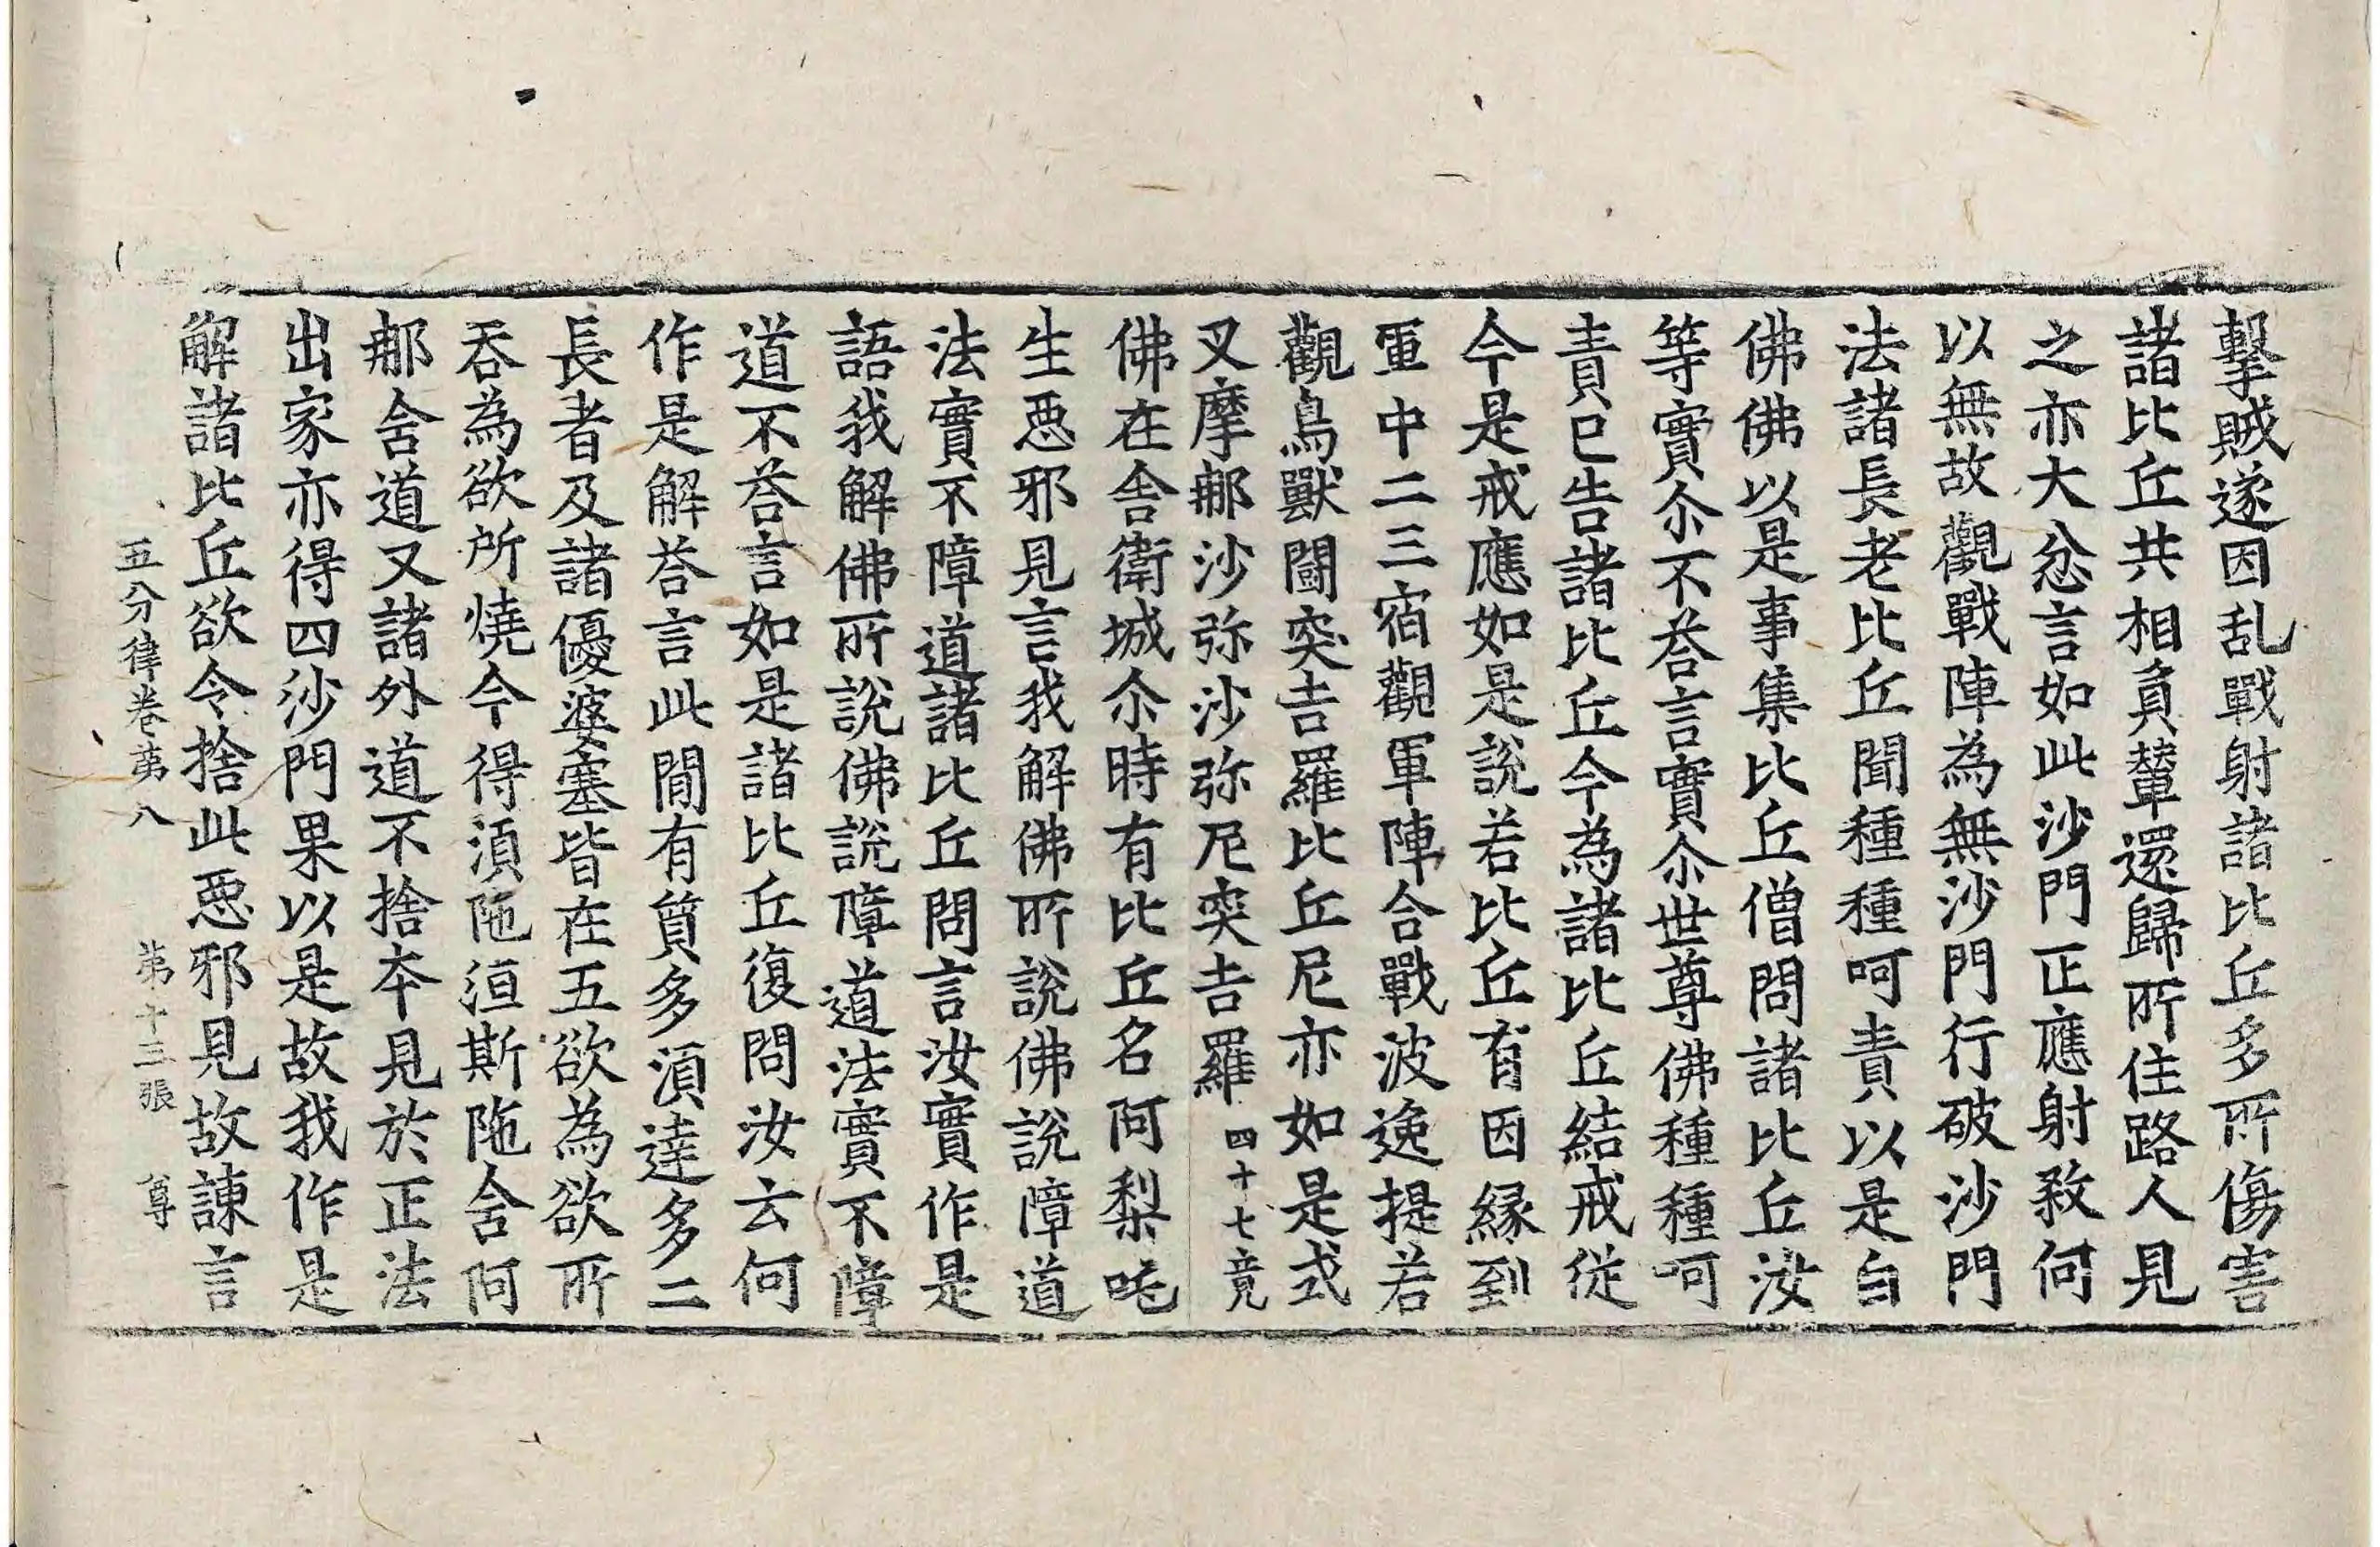 擊賊遂因乱戰射諸比丘多所傷害
諸比丘共相負輦還歸所住路人見
之亦大忿言如此沙門正應射敎何
以無故觀戰陣為無沙門行破沙門
法諸長老比丘聞種種呵責以是白
佛佛以是事集比丘僧問諸比丘汝
等實尒不荅言實尒世尊佛種種呵
責已告諸比丘今為諸比丘結戒從
今是戒應如是說若比丘有因縁到
軍中二三宿觀軍陣合戰波逸提若
觀鳥獸闘突吉羅比丘尼亦如是式
叉摩那沙弥沙弥尼突吉羅四十七竟
佛在舍衛城尒時有比丘名阿梨吒
生惡邪見言我解佛所說佛說障道
法實不障道諸比丘問言汝實作是
語我解佛所說佛說障道法實不障
道不荅言如是諸比丘復問汝云何
作是解荅言此間有質多須達多二
長者及諸優婆塞皆在五欲為欲所
吞為欲所燒今得須陁洹斯陁含阿
那含道又諸外道不捨本見於正法
出家亦得四沙門果以是故我作是
解諸比丘欲令捨此惡邪見故諫言
五分律卷苐八　苐十三張　尊